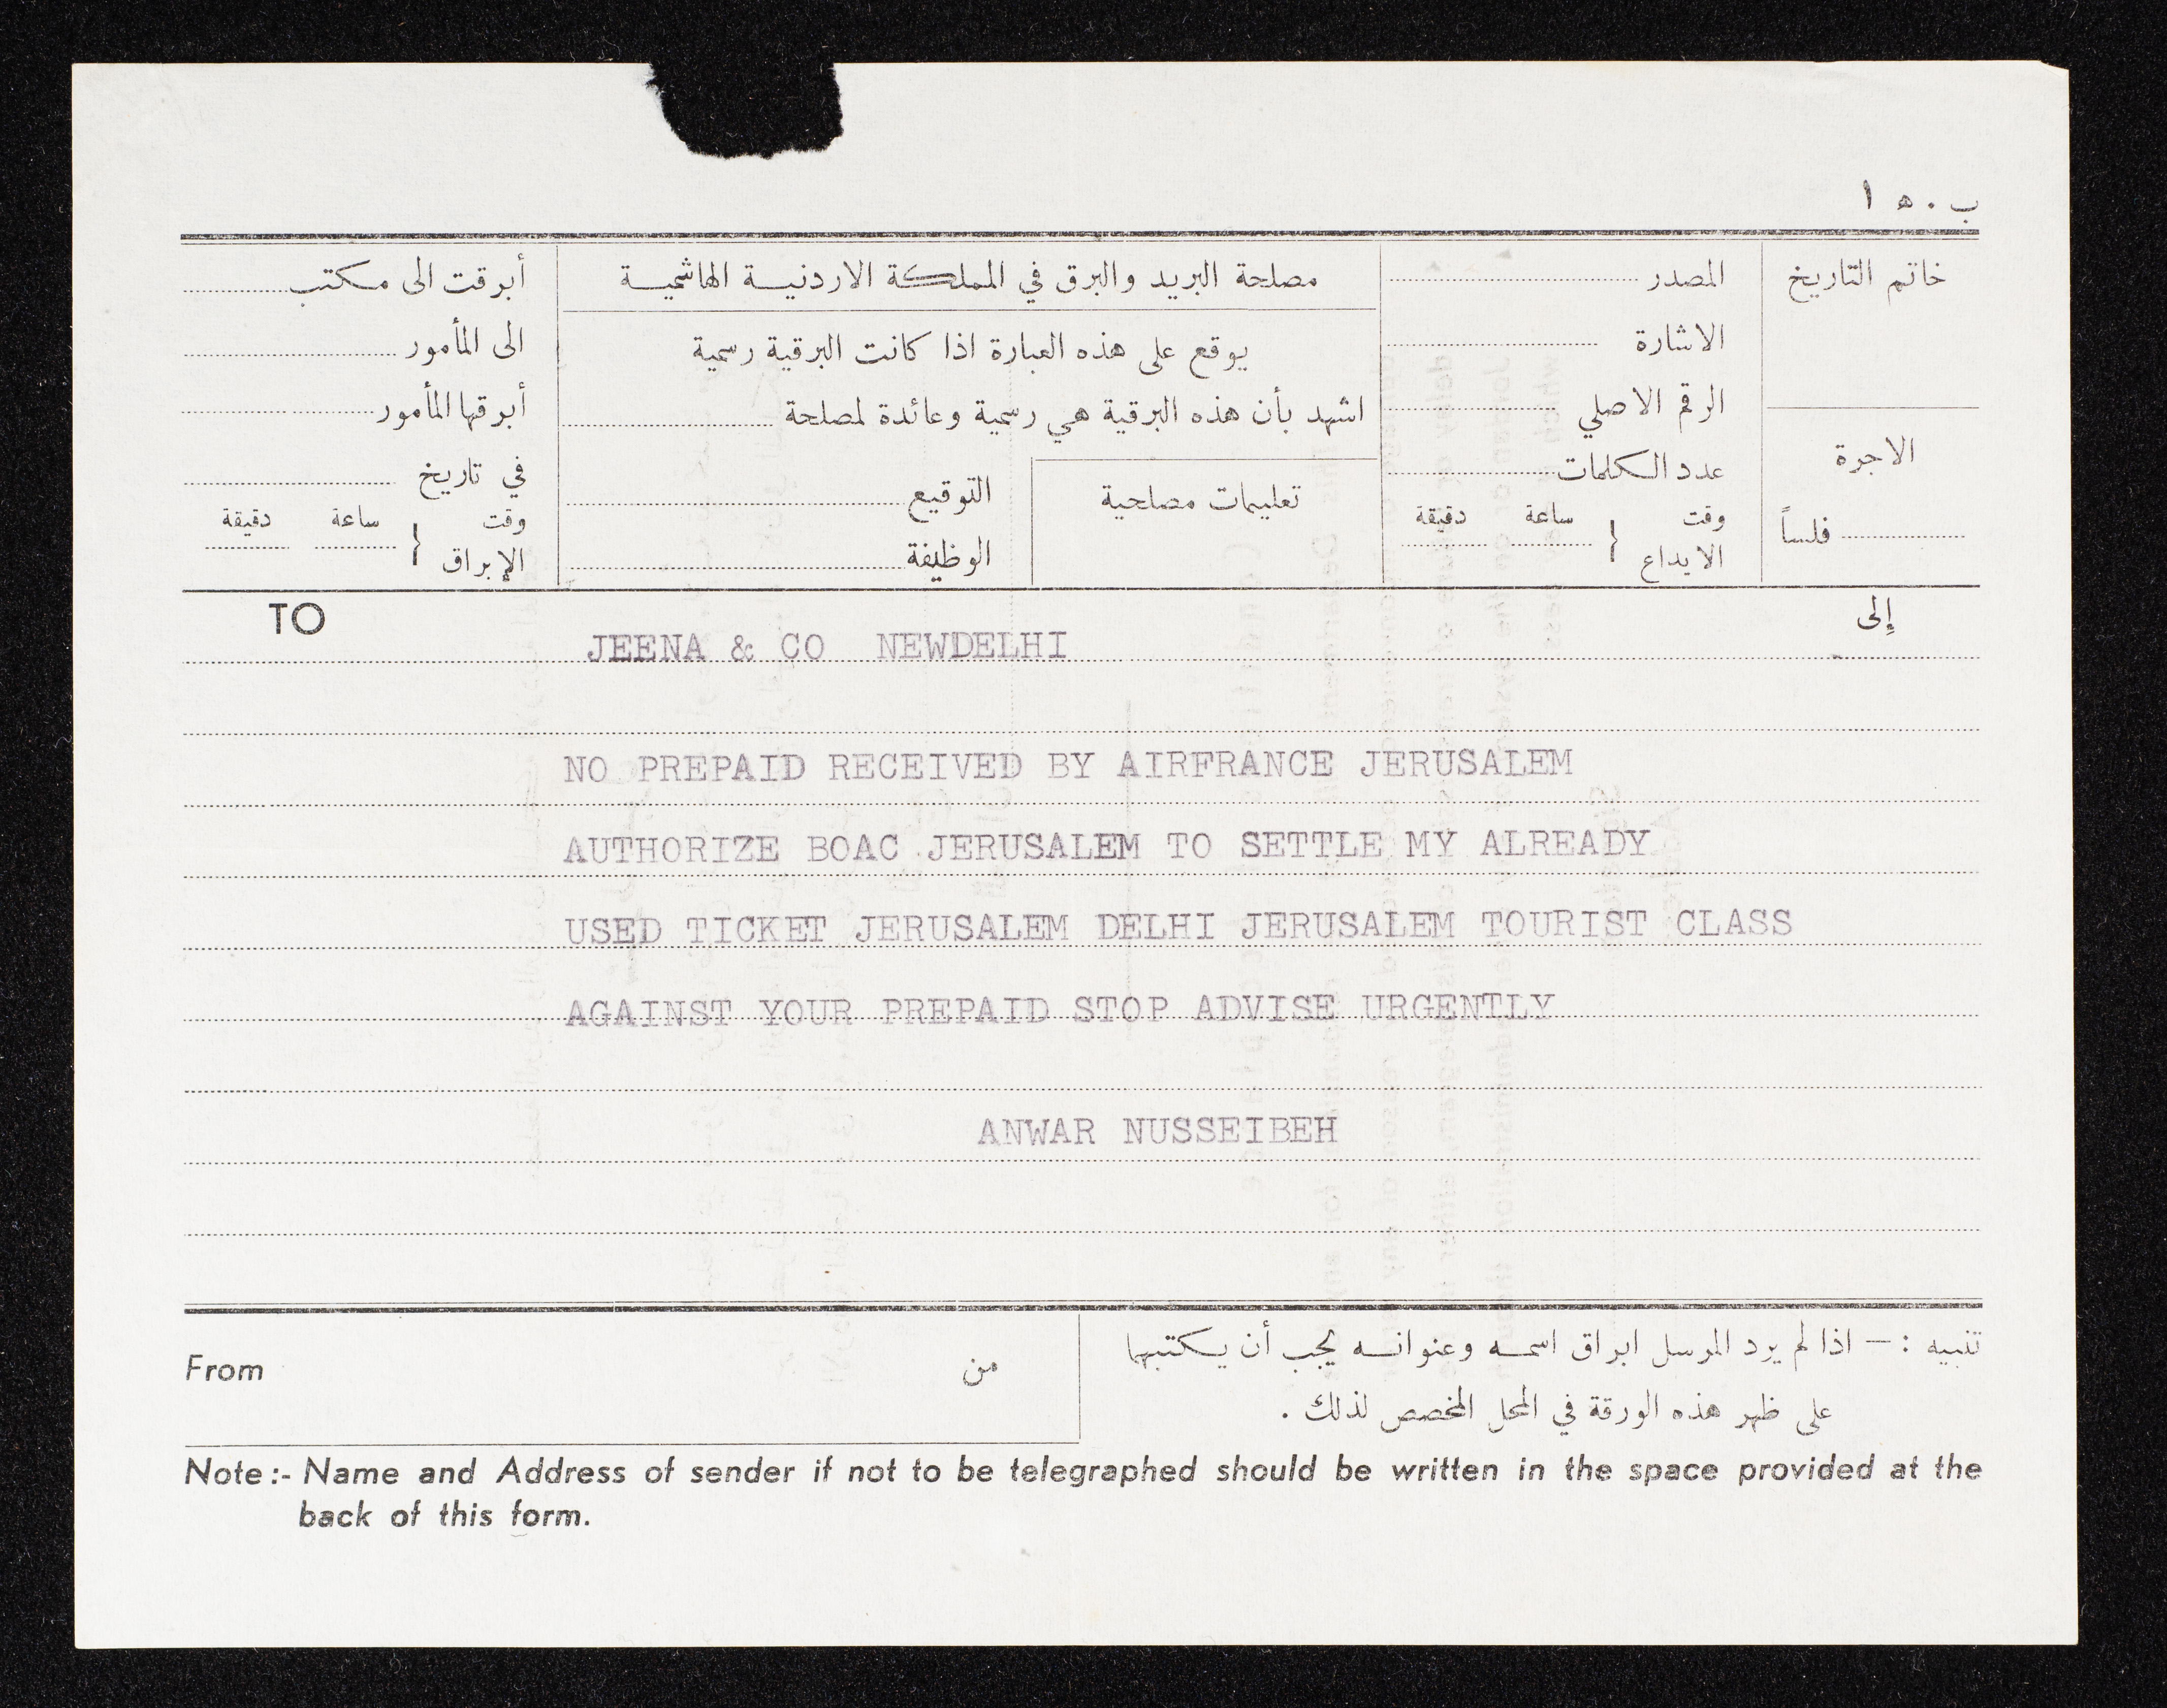 ب ٠ ٥ ١
خاتم التاريخ
الاجرة
فلساً
المصدر
الاشارة
الرقم الاصلي
عدد الكلمات
وقت الايداع } ساعة دقيقة
مصلحة البريد والبرق في المملكة الاردنية الهاشمية
يوقع على هذه العبارة اذا كانت البرقية رسمية
اشهد بأن هذه البرقية هي رسمية وعائدة لمصلحة
تعليمات مصلحية
التوقيع
الوظيفة
أبرقت الى مكتب
الى المأمور
أبرقها المأمور
في تاريخ
وقت الإبراق } ساعة دقيقة
TO إلى
JEENA & CO NEWDELHI
NO PREPAID RECEIVED BY AIRFRANCE JERUSALEM
AUTHORIZE BOAC JERUSALEM TO SETTLE MY ALREADY
USED TICKET JERUSALEM DELHI JERUSALEM TOURIST CLASS
AGAINST YOUR PREPAID STOP ADVISE URGENTLY
ANWAR NUSSEIBEH
From من
تنبيه :— اذا لم يرد المرسل ابراق اسمه وعنوانه يجب أن يكتبها
على ظهر هذه الورقة في المحل المخصص لذلك .
Note :- Name and Address of sender if not to be telegraphed should be written in the space provided at the
back of this form.